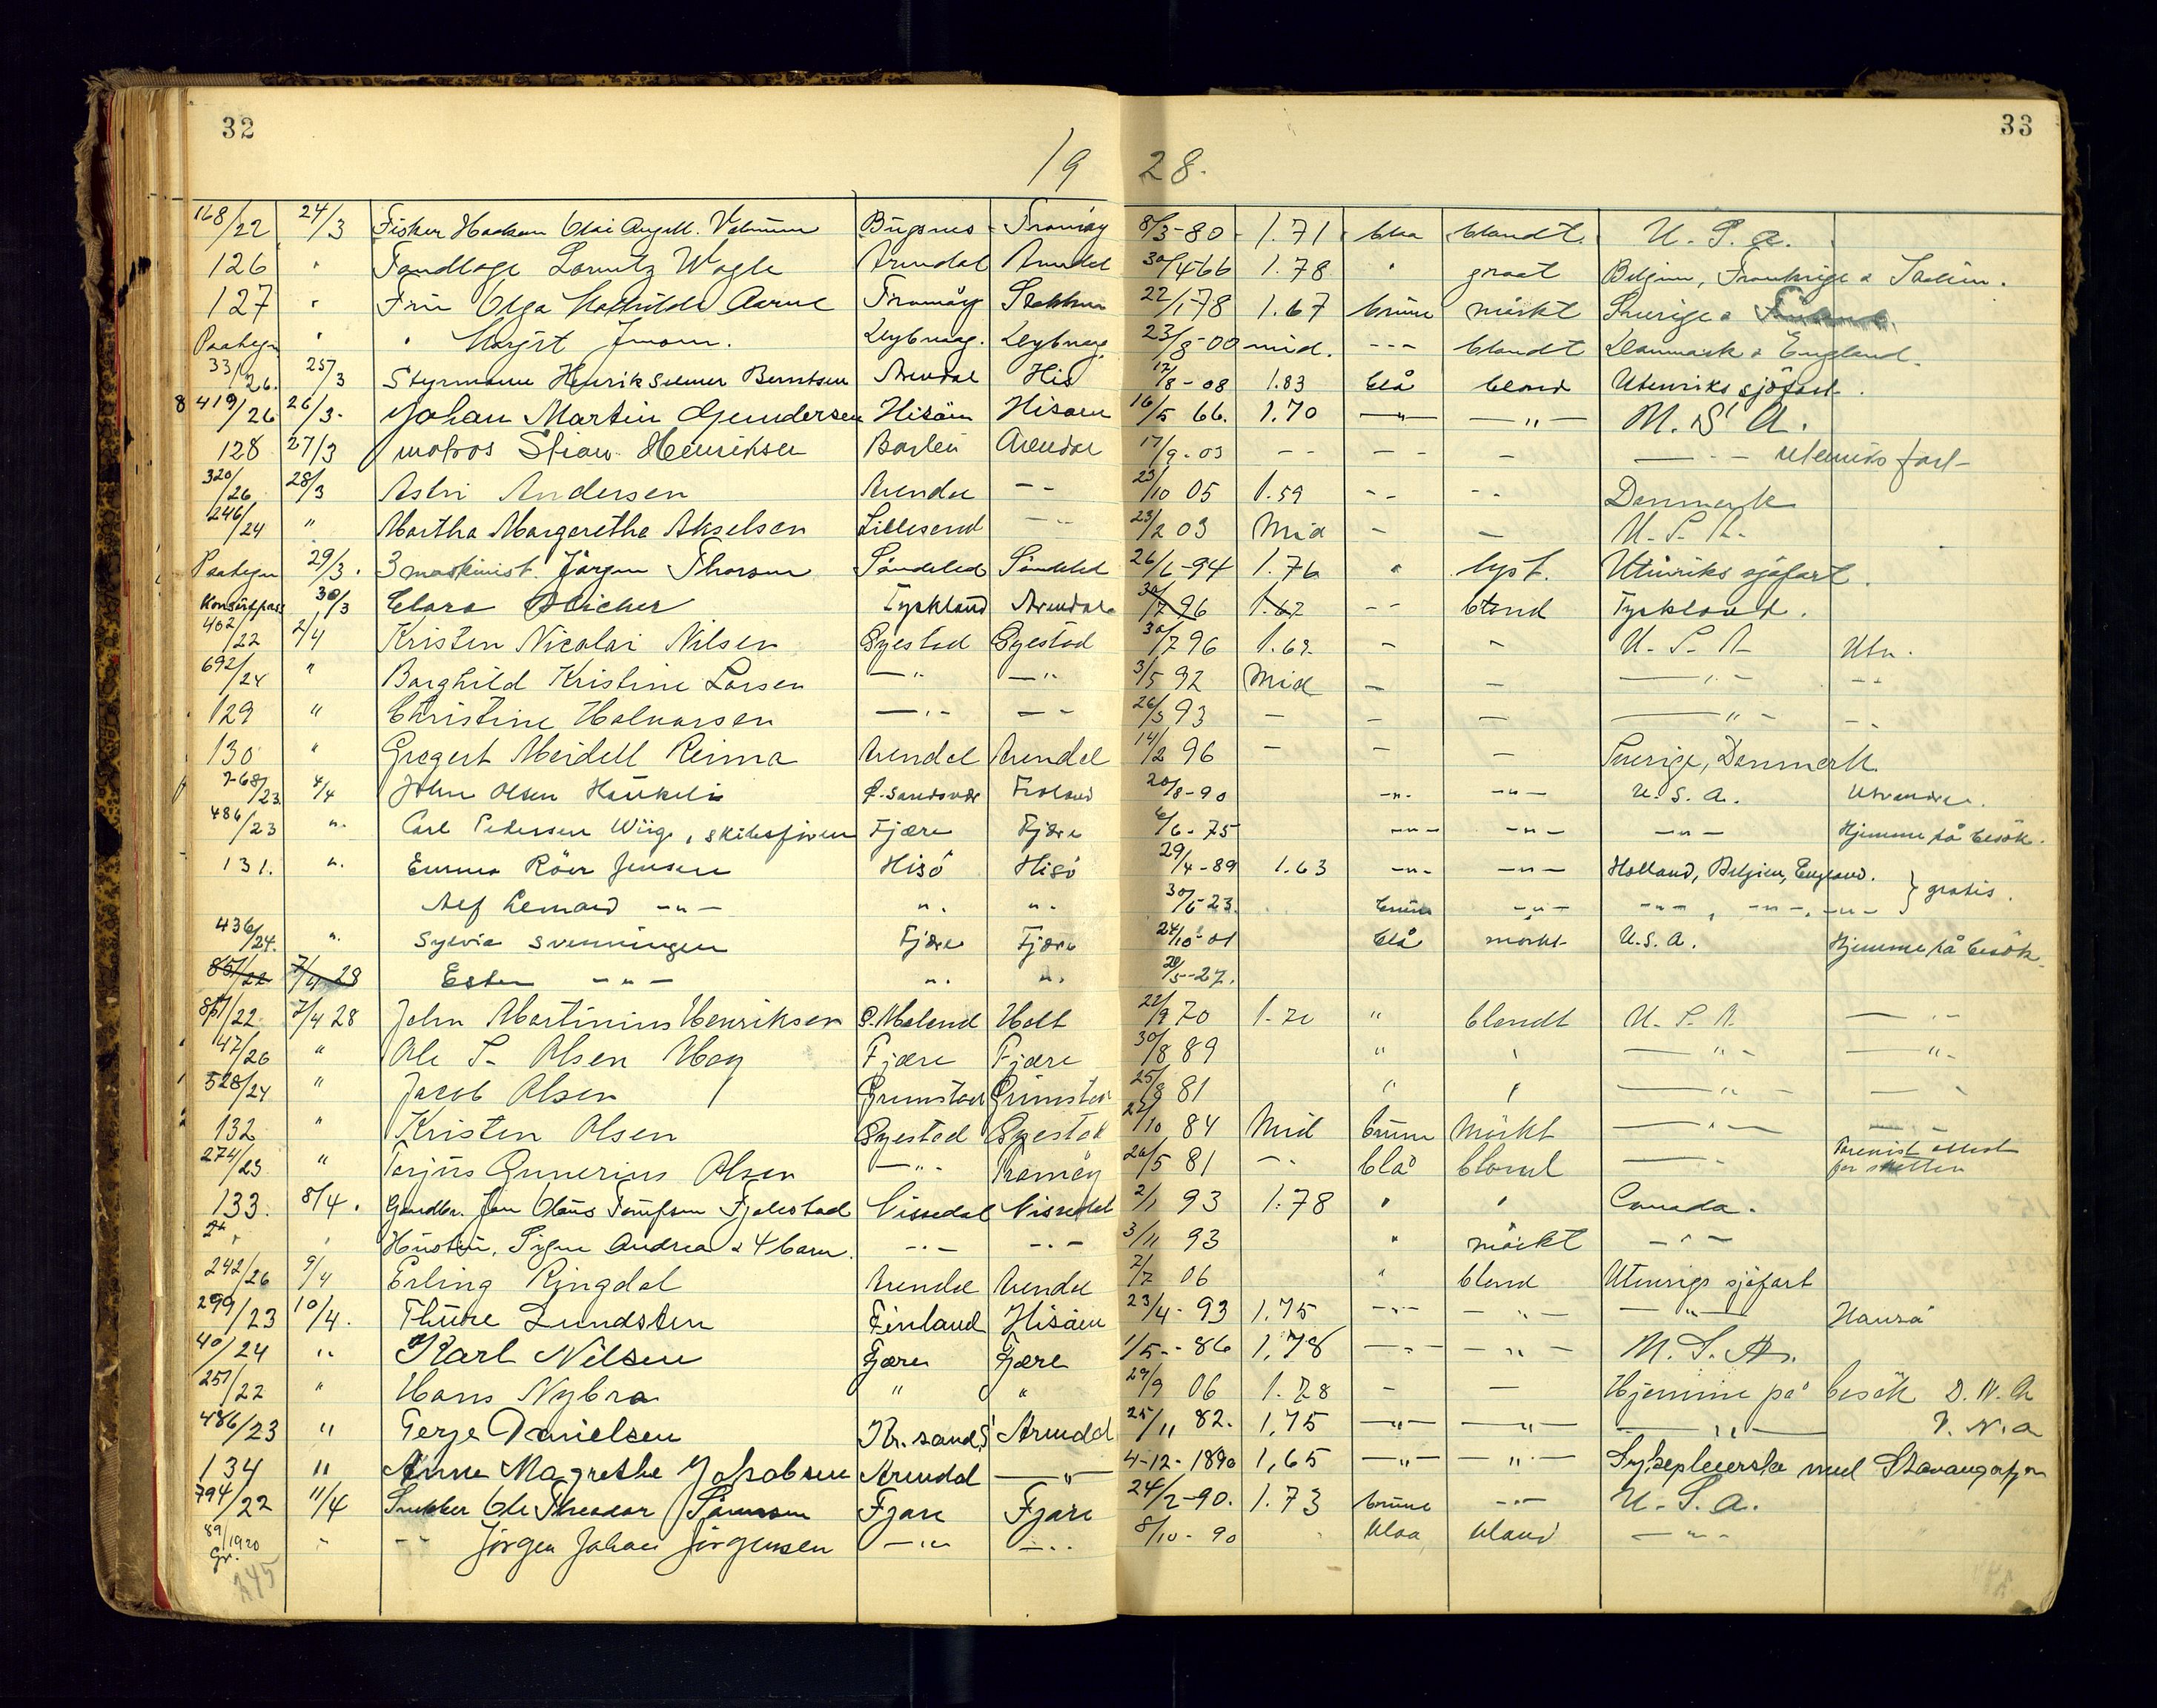 32 33
19 28.
168/22 24/3 Fisker Haakon Olai Angell. Bugsnes Tromöy 8/3-80 1.71 blaa blandt. U. S. a.
126 " Tandlæge Lorentz Wagle Arendal Arendal 30/4 66 1.78 " graat Belgien, Frankrige & Italien.
127 " Fru Olga Mathilde Aarne Tromöy Stokken 22/1 78 1.67 brune mörkt Sverige &
Paategn " " Margit Lyngnæs. 23/8-00 mid. --- blandt Danmark & England.
33/26. 25/3 Styrmann Henrik Selmer Berntsen Arendal His 17/8-08 1.83 blå blond Utenriks sjöfart.
8 419/26 26/3. Johan Martin Gundersen Hisöen Hisöen 16/5 66. 1.70 —"— —"— U. S. A.
128 27/3 matros Stian Henriksen Barbu Arendal 17/9-03 -- -- — — utenriks fart
320/26 28/3 Astri Andersen Arendal -- 23/10 05 1.59 -- -- Danmark
246/24 " Martha Margarethe Akselsen Lillesand -- 23/2 03 Mid - - U. S. A.
Paategn 29/3. 3 maskinist. Jörgen Thorsen Söndeled Söndeled 26/6-94 1.76 " lyst. Utenriks sjöfart.
Konsulpass 30/3 Clara Blicher Tyskland Arendal 30/7 96 1.62 -- blond Tyskland.
402/22 2/4 Kristen Nicolai Nilsen Öyestad Öyestad 30/7 96 1.62 - - U. S. A Utv.
692/24 " Borghild Kristine Larsen —"- —"- 3/5 92 Mid - - —"- --
129 " Christine Halvorsen —"- -- 26/3 93 - - - —"- --
130 " Gregert Meidell Reima Arendal Arendal 14/2 96 - - - Sverige, Danmark
268/23 4/4 John Olsen Haukeli Ö. Sandsvær Froland 20/8-90 -"- -"- U. S. A. Utvandrer.
486/23 ". Carl Pedersen Wiig, skibsfører Fjære Fjære 6/6-75 -"- -"- -"- Hjemme på besök.
131. ". Emma Röer Jensen Hisö Hisö 29/4-89 1.63 -"- -"- Holland, Belgien, England.
Alf Lennard -"- ". ". 30/6-23. brune -"- -"-, -"-, -"- } gratis.
436/24. ". Sylvia Svenningsen Fjære Fjære 24/10-01 blå mörkt U.S.A. Hjemme på besök
851/22 7/4 28 Ester -"- ". ". 28/5-27.
851/22 7/4 28 John Martinius Henriksen Ö. Moland Holt 22/9 70 1.70 " blondt U. S. A. —"-
47/26 " Ole S. Olsen Hoy Fjære Fjære 30/8 89 " " —"- —"-
528/24 " Jacob Olsen Grimstad Grimstad 25/8 81 " " —"- —"-
132 " Kristen Olsen Öyestad Öyestad 22/10 84 Mid brune Mörkt —"-
274/23 " Torjus Gunerius Olsen —"- Tromöy 20/5 81 -- blå blond —- attest for skatten
133. 8/4. Gaardbr. Jon Olaus Fjalestad Nissedal Nissedal 2/1 93 1.78 " " Canada.
" Hustru, Signe Andrea & 4 barn. -"- -"- 3/11 93 " mörkt -"-
242/26 9/4 Erling Ringdal Arendal Arendal 7/7 06 " blond Utenrigs sjöfart
299/23 10/4. Thure Lundsten Finland Hisöen 23/4-93 1.75 -"- —"— —"— Hansa
40/24 " Karl Nilsen Fjære Fjære 1/5-86 1,78 —"— —"— U. S. A.
251/22 " Hans Nybro " " 29/9 06 1.78 - — Hjemme på besök D. N. A
486/23 " Terje Danielsen Kr.sand S Arendal 25/11 82. 1,75 —"— —"— —"— D. N. a
134 " Anne Magrethe Jakobsen Arendal —"— 4-12-1890 1,65 —"— —"— Sykepleierske med Stavangerfjor
794/22 11/4 Snekker Ole Theodor Fjære Fjære 24/2-90. 1.73 brune -"- U. S. a.
89/1920 Gr. " -- Jörgen Johan Jörgensen -"- -"- 8/10-90 blaa bland -"-
245